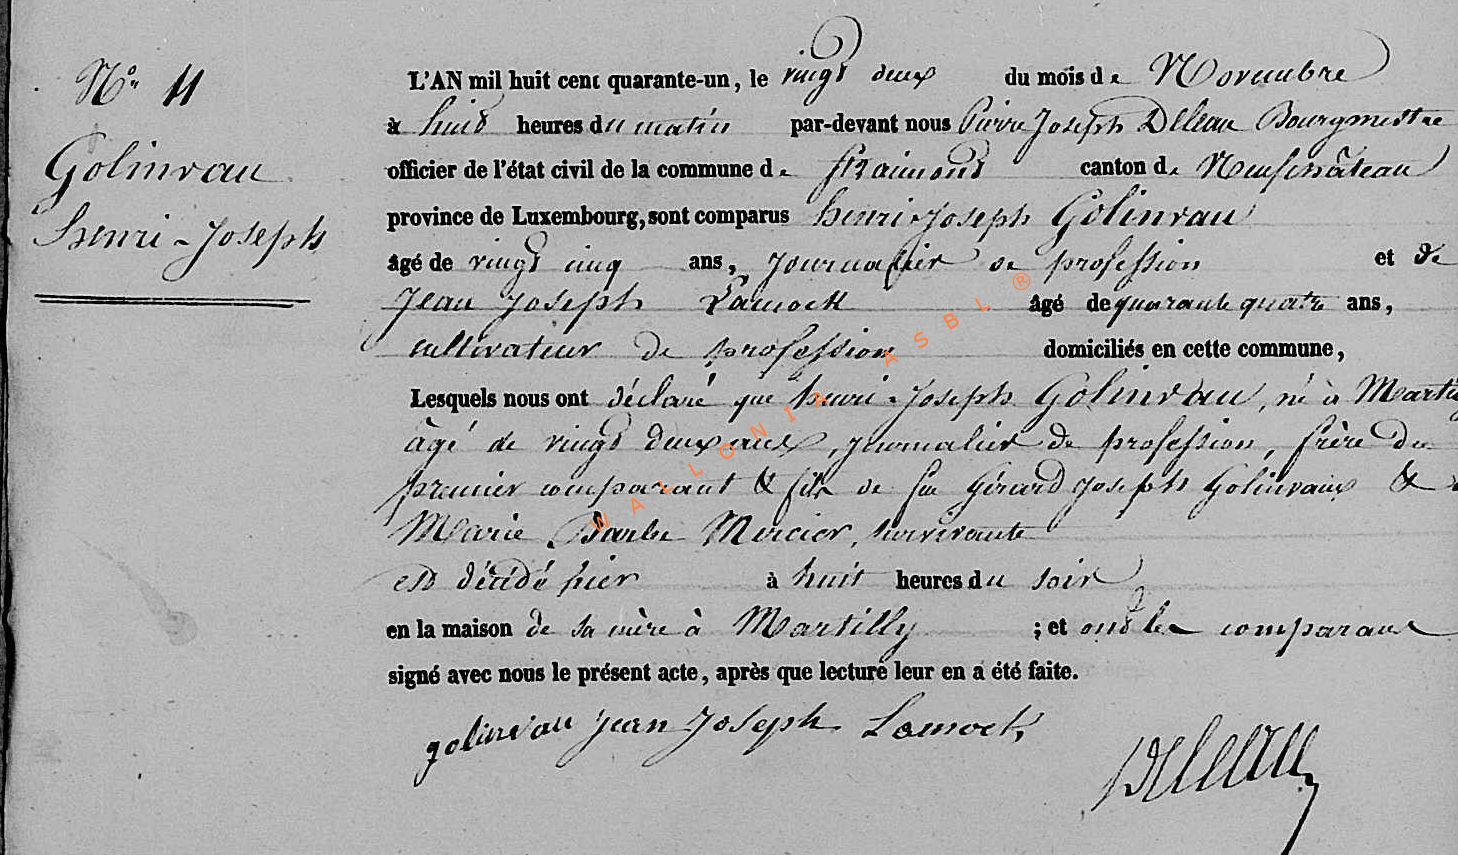 N° 11
Golinvau
henri - Joseph
L'AN mil huit cent quarante-un, le vingt deux du mois de Novembre
à huit heures du matin par-devant nous Pierre Joseph Deleau Bourgmestre
officier de l'état civil de la commune de canton de Neufchâteau
province de Luxembourg, sont comparus henri-Joseph Golinvau
âgé de vingt cinq ans, Journalier de profession et de
Jean Joseph Lamock âgé de quarante quatre ans,
cultivateur de profession domiciliés en cette commune,
Lesquels nous ont déclaré que henri-Joseph Golinvau, né à Martilly
âgé de vingt deux ans, journalier de profession, frère du
premier comparant & fils de feu Gérard Joseph Golinvaux &
Marie Barbe Mercier, survivante
est décédé hier à huit heures du soir
en la maison de sa mère à Martilly ; et ont les comparans
signé avec nous le présent acte, après que lecture leur en a été faite.
golinvau Jean Joseph Lamock
Deleau
WALLONIA ASBL ®